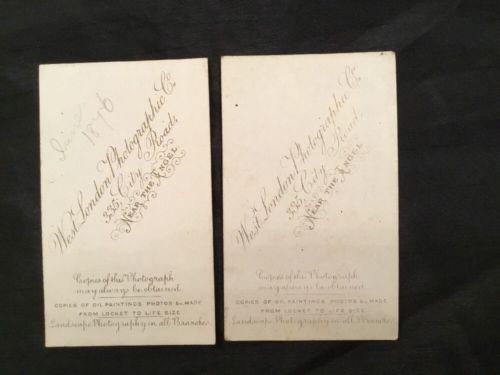 June
1876
Westn London Photographic Co
335, City Road.
Near the Angel
Copies of this Photograph
may always be obtained
COPIES OF OIL PAINTINGS PHOTOS &c, MADE
FROM LOCKET TO LIFE SIZE
Landscape Photography in all Branches
Westn London Photographic Co
335, City Road.
Near the Angel
Copies of this Photograph
may always be obtained
COPIES OF OIL PAINTINGS PHOTOS &c, MADE
FROM LOCKET TO LIFE SIZE
Landscape Photography in all Branches